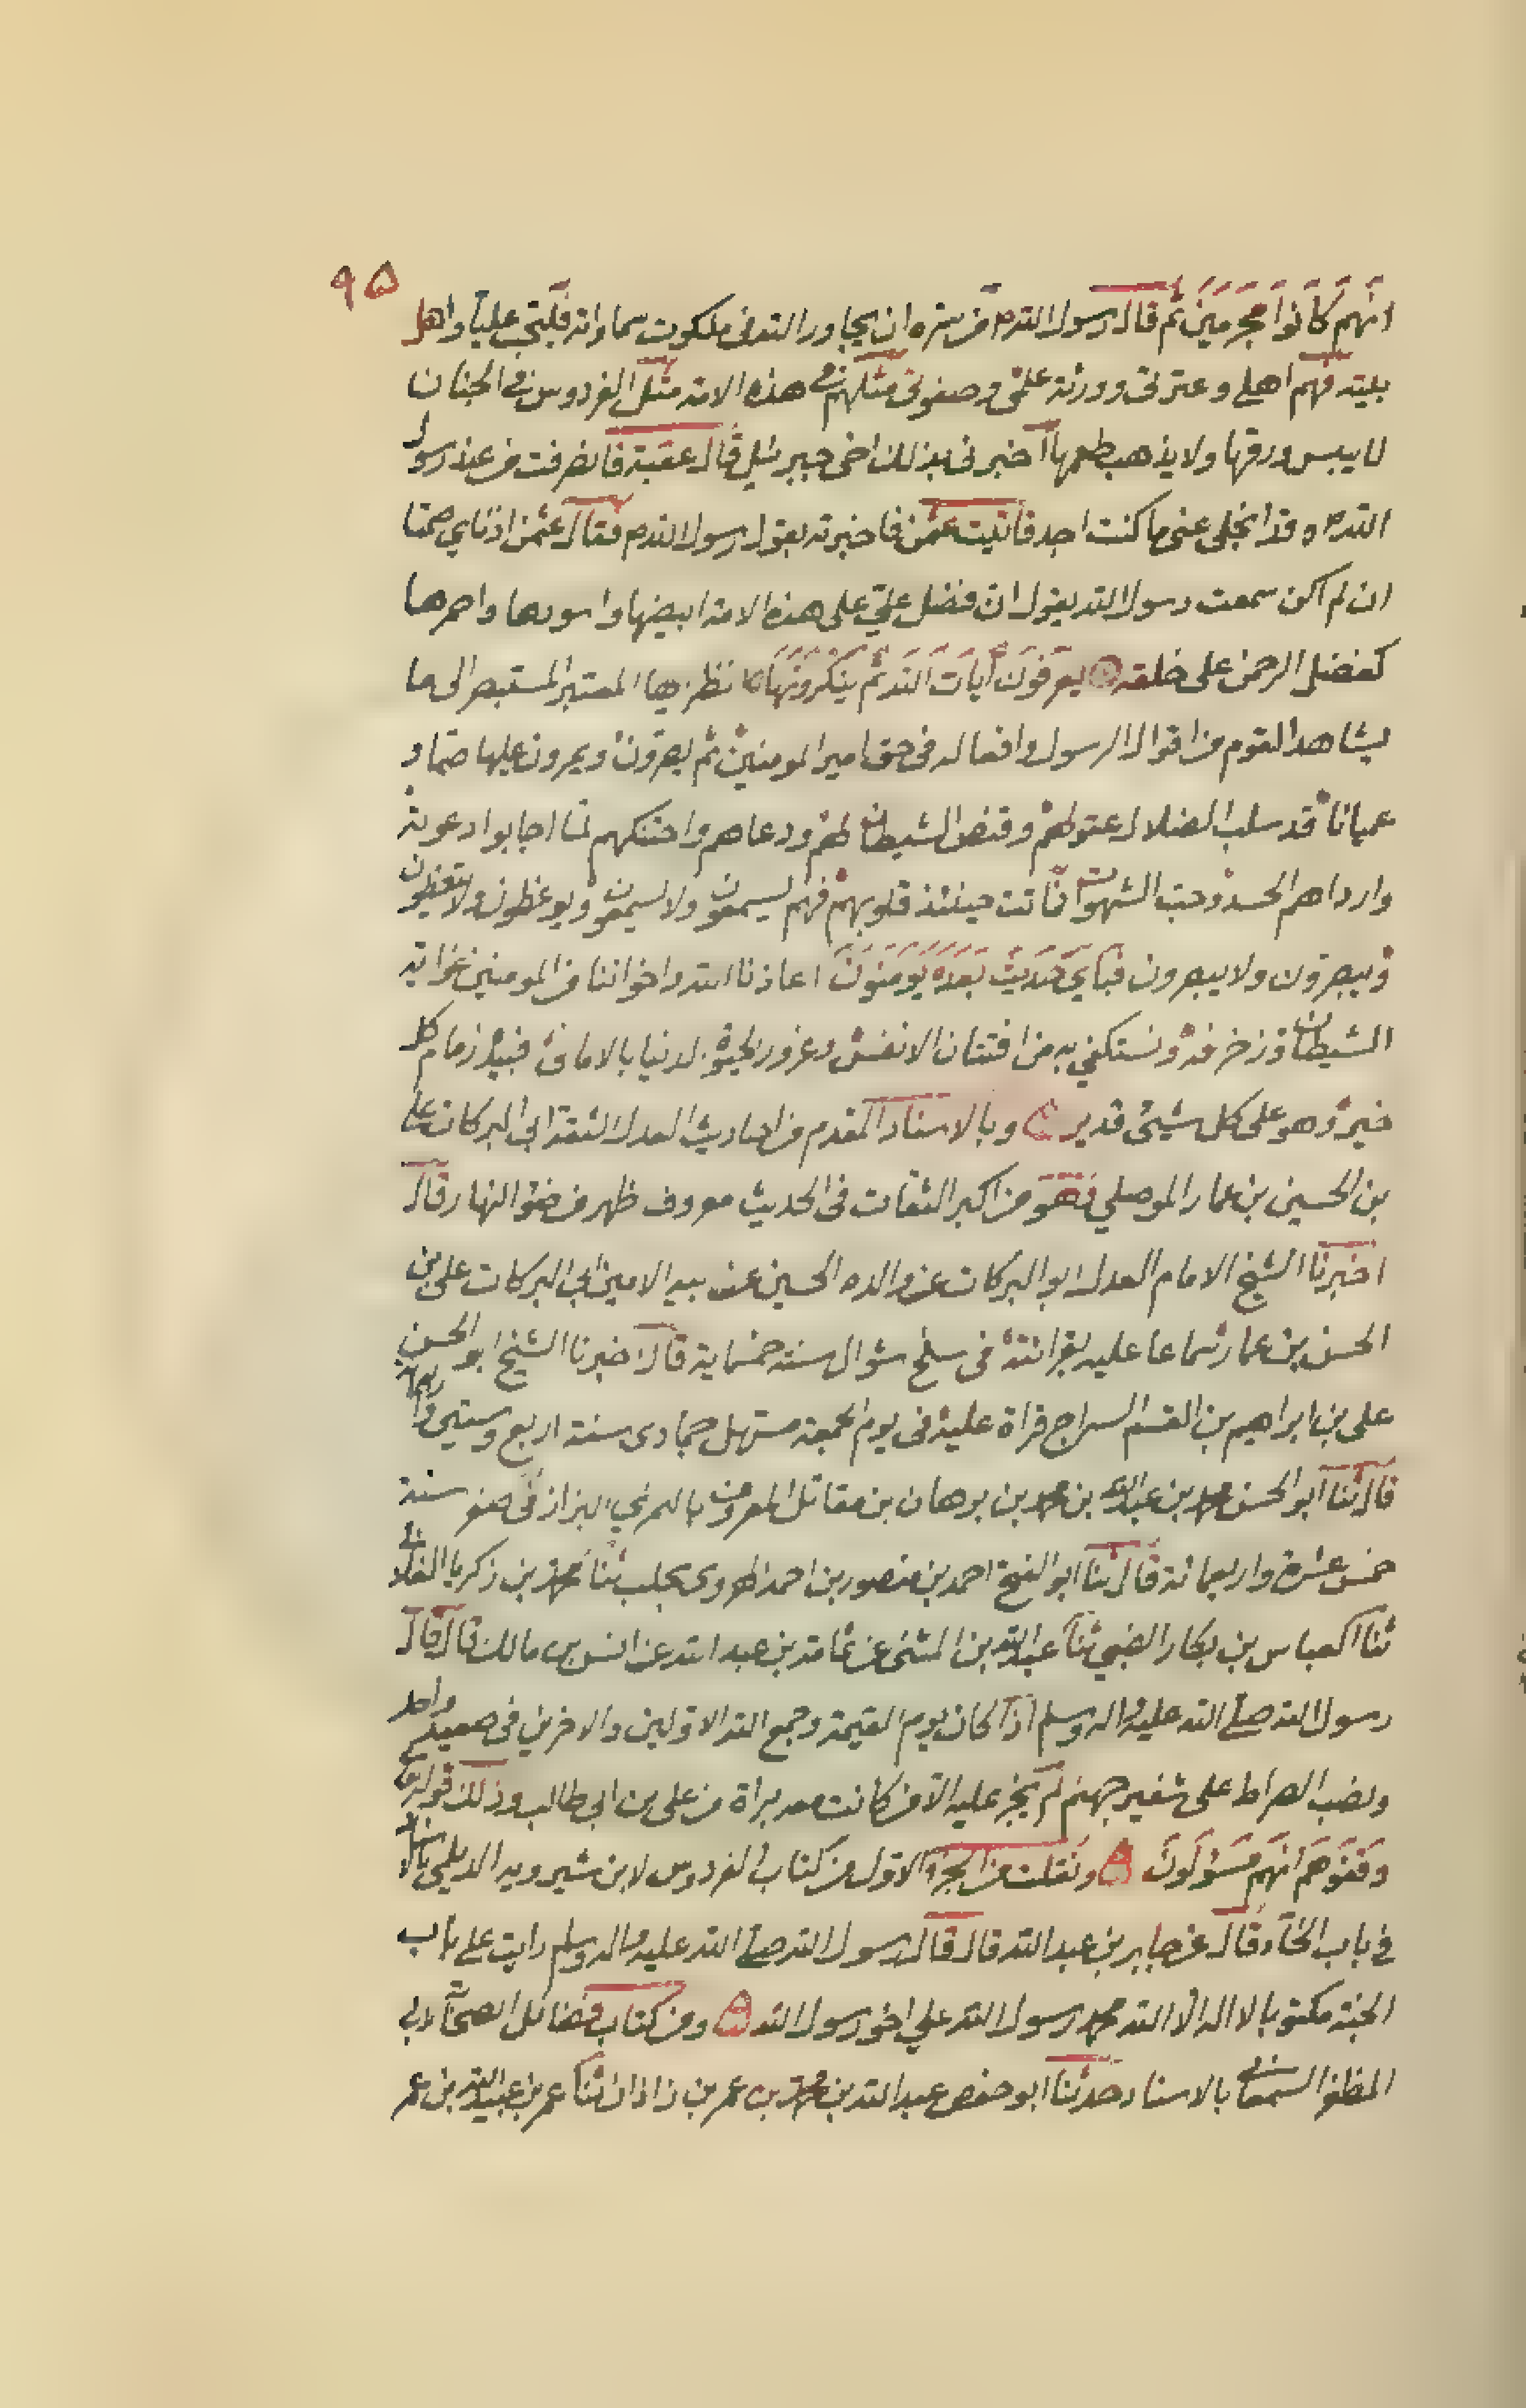 ۹۵
انهم كانوا مجرمين ثم قال رسول الله ص من سره ان يجاور الله فى ملكوت سماواته فليحب عليا واهل
بيته فهم اهلي وعترتى وورثة علمى وصفوتى مثلهم فى هذه الامة مثل الفردوس فى الجنان
لا ييبس ورقها ولا يذهب طعمها اخبرنى بذلك اخى جبرئيل قال عقبة فانصرفت من عند رسول
الله ص وقد انجلى عنى ما كنت اجد فاتيت عثمن فاخبرته بقول رسول الله ص فقال عثمن اذناي صمتا
ان لم اكن سمعت رسول الله يقول ان فضل علي على هذه الامة ابيضها واسودها واحمرها
كفضل الرحمن على خلقه يعرفون آيات الله ثم ينكرونها نظر بها المعتبر المستبصر الى ما
يشاهد القوم من اقوال الرسول وافعاله فى حق امير المومنين ثم يصرون ويمرون عليها صما و
عميانا قد سلب الضلال عقولهم وقنص الشيطان لهم ودعاهم واحتنكهم لما اجابوا دعوته
وارداهم الحسد وحب الشهوات فماتت حينئذ قلوبهم فهم يسمعون ولا يسمعون ويوعظون ولا يتعظون
ويبصرون ولا يبصرون فباي حديث بعده يؤمنون اعاذنا الله واخواننا من المومنين غواية
الشيطان وزخرفه ونستكفي به من افتتان الانفس وغرور الحيوة الدنيا بالامانى فبيده زمام كل
خير وهو على كل شيئ قدير وبالاسناد المقدم من احاديث العدل الثقة ابى البركات على
بن الحسين بن عمار الموصلي فهو من اكبر الثقات فى الحديث معروف ظهر من ضوء النهار قال
اخبرنا الشيخ الامام العدل ابو البركات عن والده الحسين عن ... الامين ابى البركات على بن
الحسن بن عمار سماعا عليه بقرائته فى سلخ شوال سنة خمسماية قال اخبرنا الشيخ ابو الحسن
على بن ابراهيم بن القسم السراج قراة عليه فى يوم الجمعة مستهل جمادى سنة اربع وستين واربعماة
قال ثنا ابو الحسن محمد بن عبدالله بن محمد بن برهان بن مقاتل المعروف بالمرني البزاز فى صفر سنة
خمس عشرة واربعمائة قال ثنا ابو الفتح احمد بن منصور بن احمد الهروى بحلب ثنا محمد بن زكريا الغلابى
ثنا العباس بن بكار الضبي ثنا عبدالله بن المثنى عن ثمامة بن عبد الله عن انس بن مالك قال قال
رسول الله صلى الله عليه واله وسلم اذا كان يوم القيمة وجمع الله الاولين والاخرين فى صعيد واحد
ونصب الصراط على شفير جهنم لم يجز عليه الا من كانت معه براة من على بن ابى طالب وذلك قوله تع
وقفوهم انهم مسؤلون ونقلت من الجزء الاول من كتاب الفردوس لابن شيرويه الديلمي بالاسناد
فى باب الخاء قال عن جابر بن عبد الله قال قال رسول الله صلى الله عليه واله وسلم رايت على باب
الجنة مكتوبا لا اله الا الله محمد رسول الله علي اخو رسول الله ومن كتاب فضائل الصحابة لابى
المظفر السمعانى بالاسناد حدثنا ابو حفص عبد الله بن محمد بن عمر بن زاذان ثنا عمر بن عبدالله بن عمر